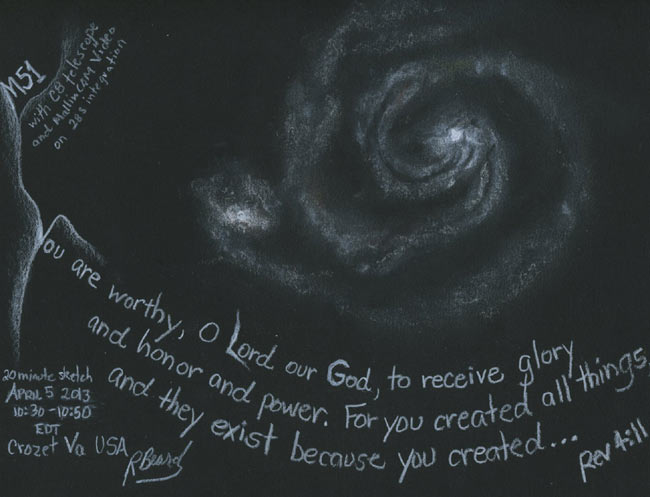 M51
with C8 telescope
and MallinCAM Video
on 28s integration
You are worthy, O Lord our God, to receive glory
and honor and power. For you created all things
and they exist because you created...
Rev 4:11
20 minute sketch
APRIL 5 2013
10:30-10:50
EDT
Crozet Va USA
RBeard